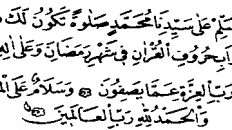 سَلِّمْ عَلَى سَيِّدِنَا مُحَمَّدٍ صَلَوٰةً تَكُونُ لَكَ
بِحُرُوفِ الْقُرْاٰنِ فِى شَهْرِ رَمَضَانَ وَعَلَى
رَبِّ الْعِزَّةِ عَمَّا يَصِفُونَ وَسَلَامٌ عَلَى
وَالْحَمْدُ لِلّٰهِ رَبِّ الْعَالَمِينَ